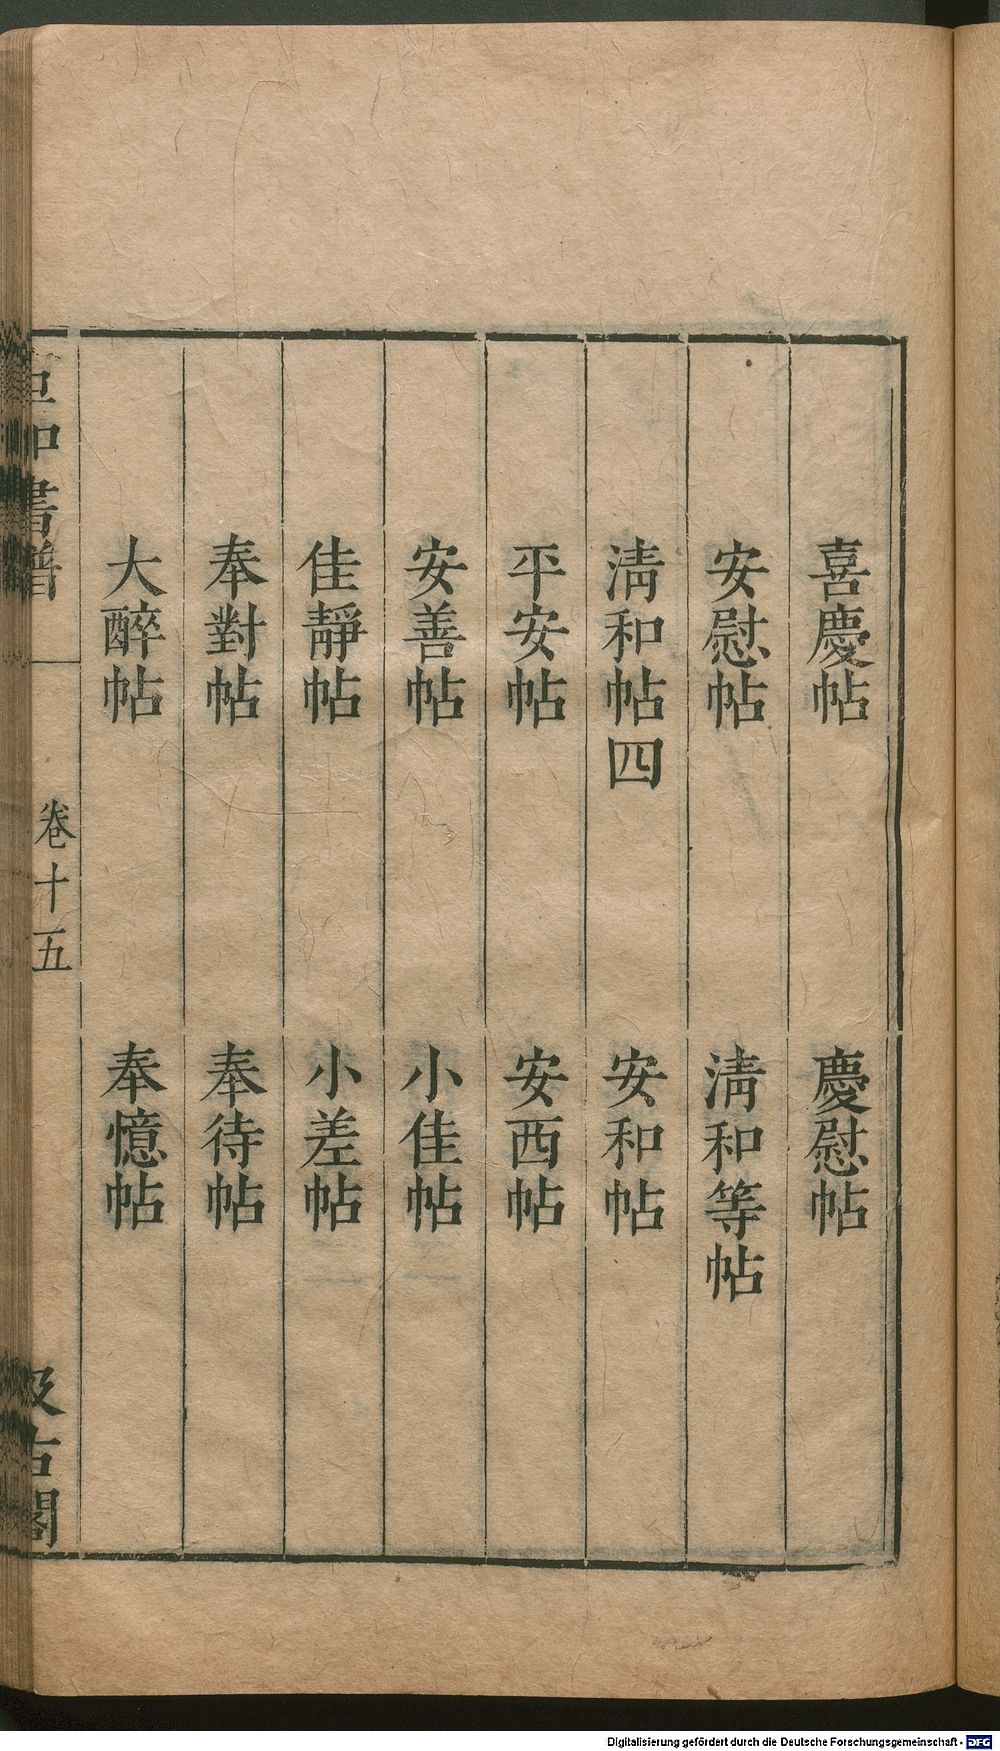 喜慶帖　慶慰帖
安慰帖　淸和等帖
淸和帖四　安和帖
平安帖　安西帖
安善帖　小佳帖
佳靜帖　小差帖
奉對帖　奉待帖
大醉帖　奉憶帖
宣和書譜　卷十五　汲古閣
Digitalisierung gefördert durch die Deutsche Forschungsgemeinschaft - DFG